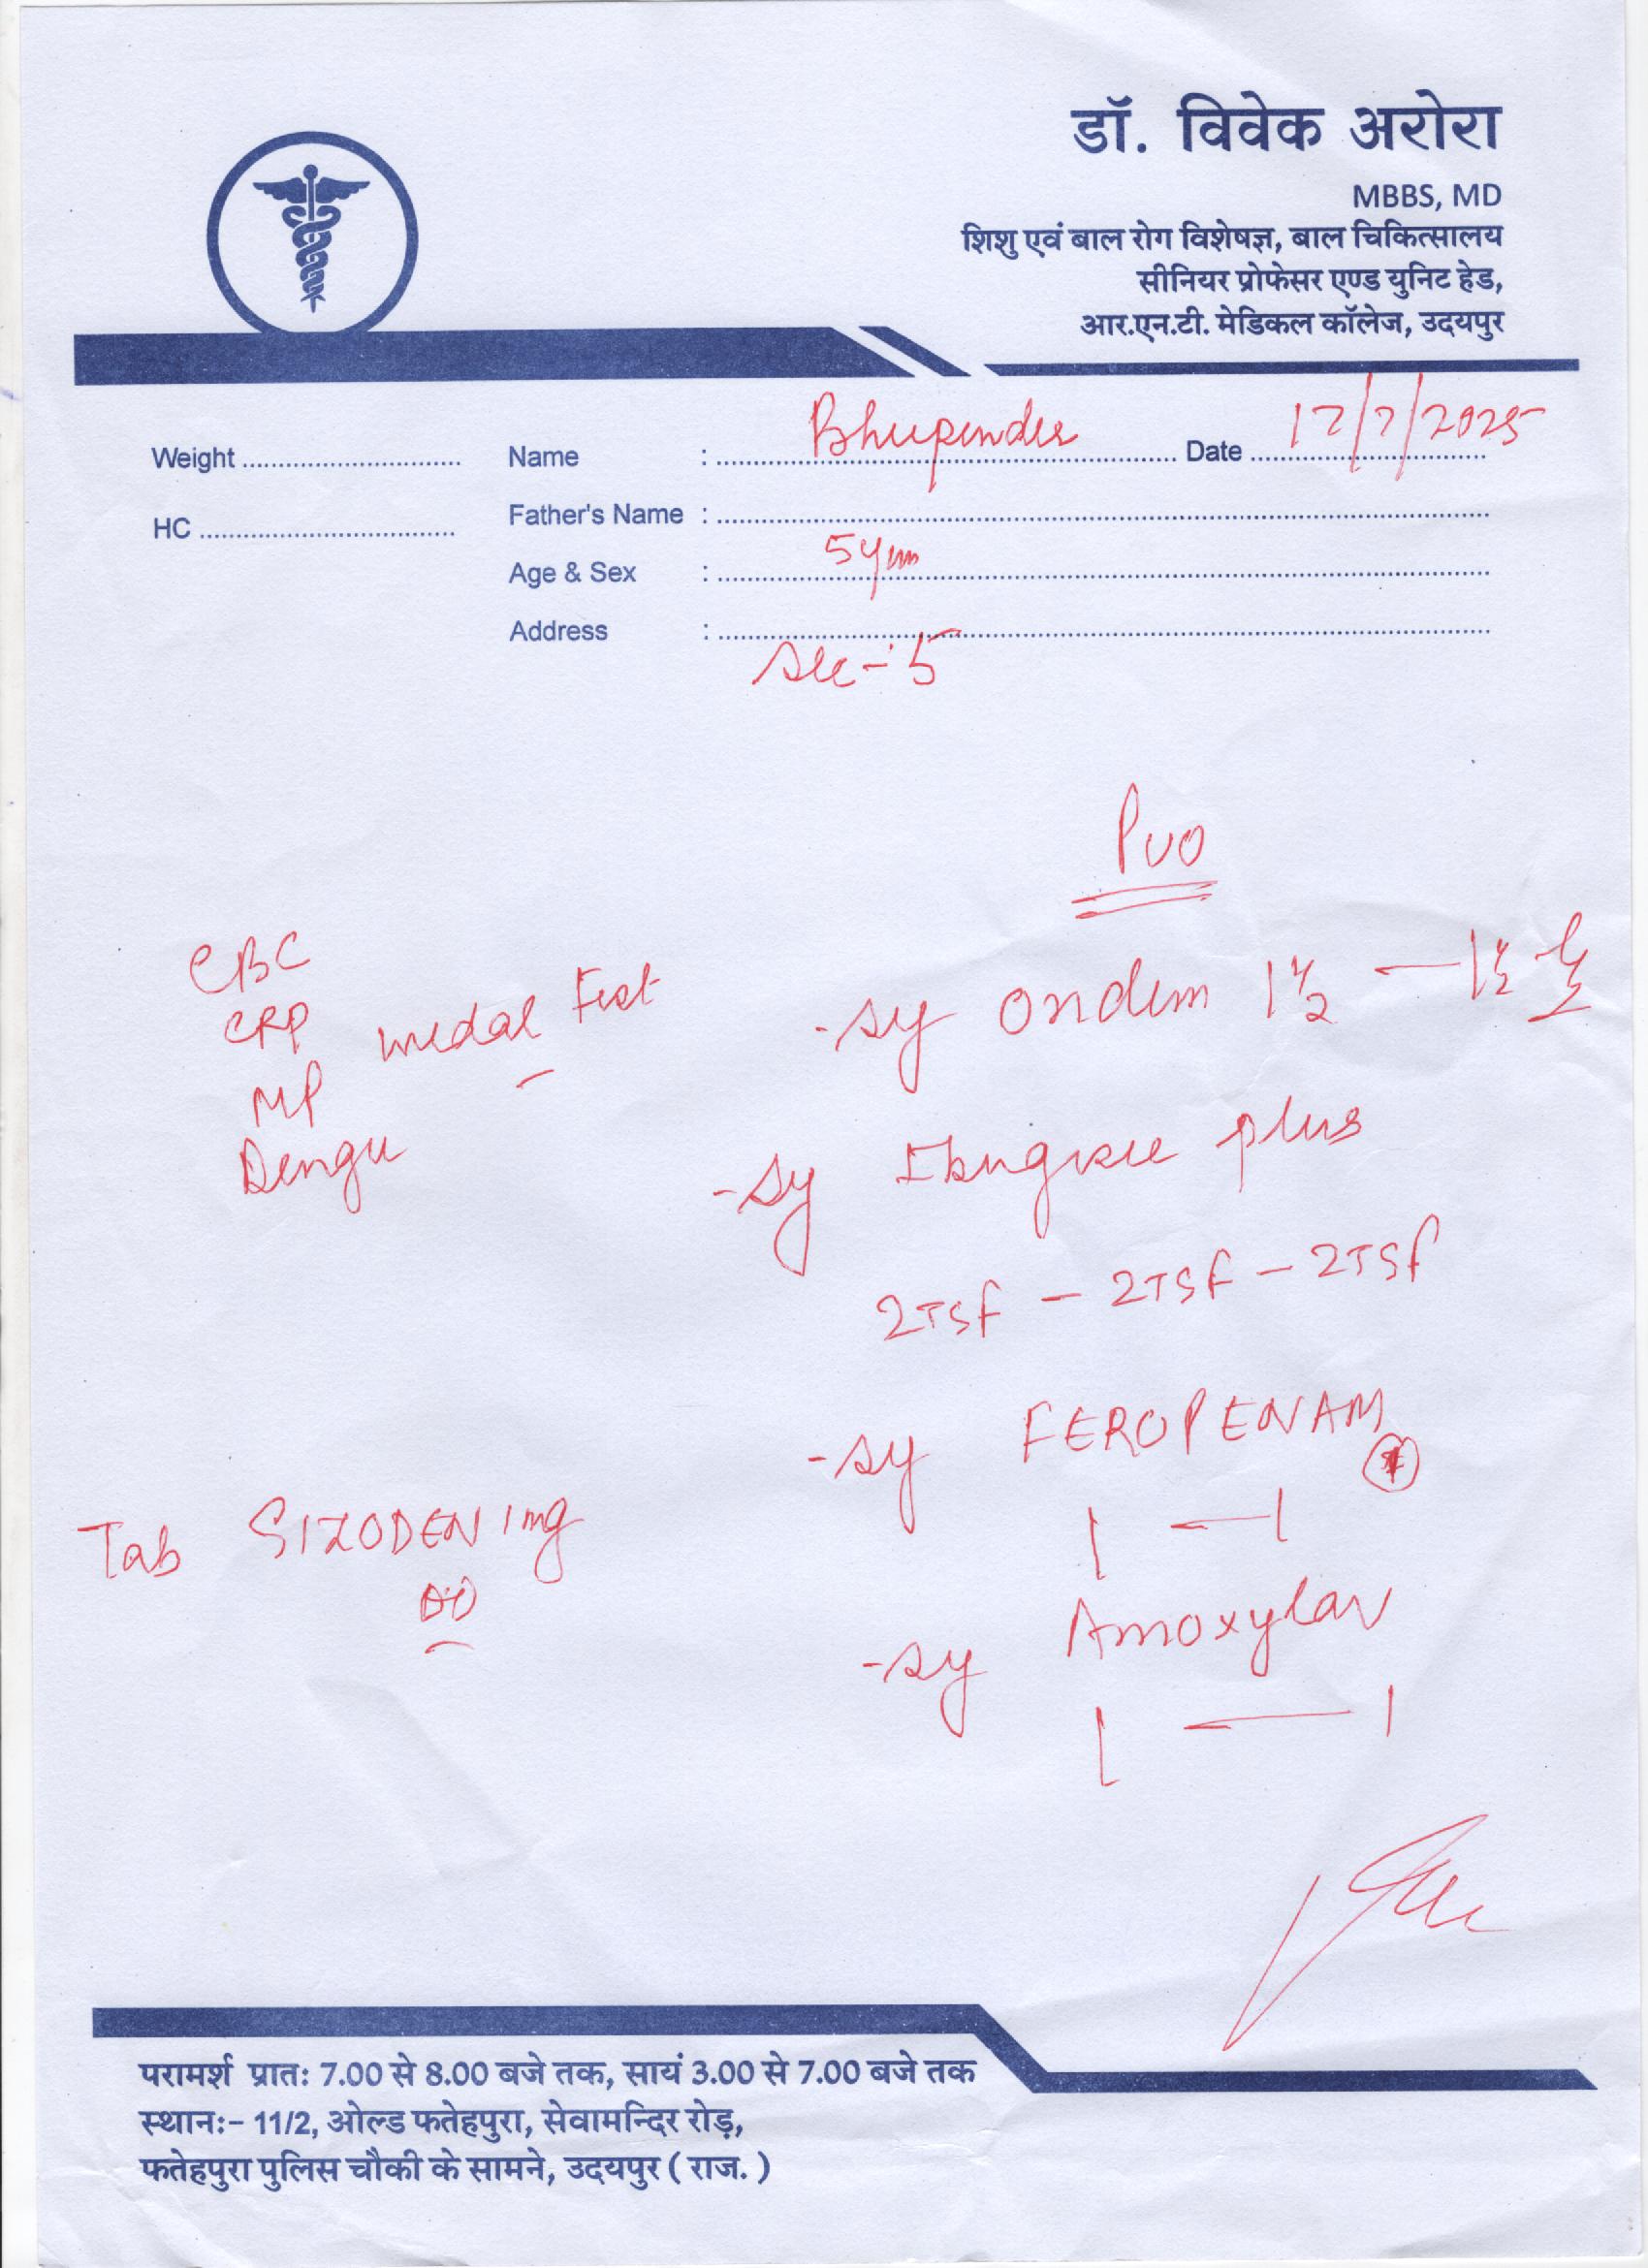 डॉ. विवेक अरोरा
MBBS, MD
शिशु एवं बाल रोग विशेषज्ञ, बाल चिकित्सालय
सीनियर प्रोफेसर एण्ड युनिट हेड,
आर.एन.टी. मेडिकल कॉलेज, उदयपुर
Weight Name : Bhupender Date 17/7/2025
HC Father's Name :
Age & Sex : 5
Address : Sec-5
PUO
CBC
CRP
MP
Dengu
-sy Ondem 1 1/2 — 1 1/2
-sy plus
2TSF - 2TSF - 2TSF
-sy FEROPENAM
1 — 1
Tab SIZODEN 1mg
-sy Amoxylav
1 — 1
परामर्श प्रातः 7.00 से 8.00 बजे तक, सायं 3.00 से 7.00 बजे तक
स्थानः- 11/2, ओल्ड फतेहपुरा, सेवामन्दिर रोड़,
फतेहपुरा पुलिस चौकी के सामने, उदयपुर ( राज. )